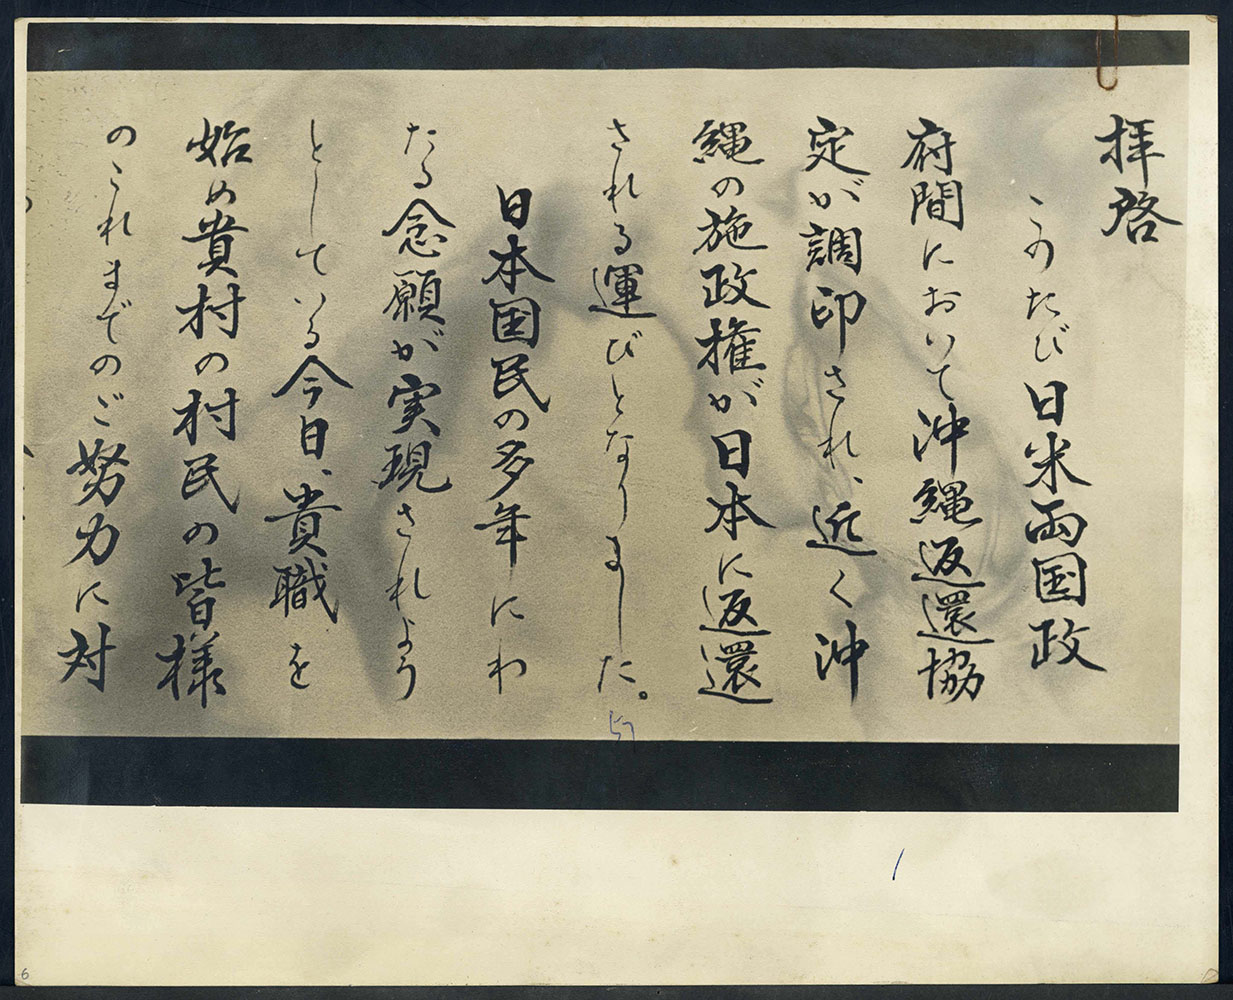 拝啓
このたび日米両国政
府間において沖縄返還協
定が調印され、近く沖
縄の施政権が日本に返還
される運びとなりました。
日本国民の多年にわ
たる念願が実現されよう
としている今日、貴職を
始め貴村の村民の皆様
のこれまでのご努力に対
6